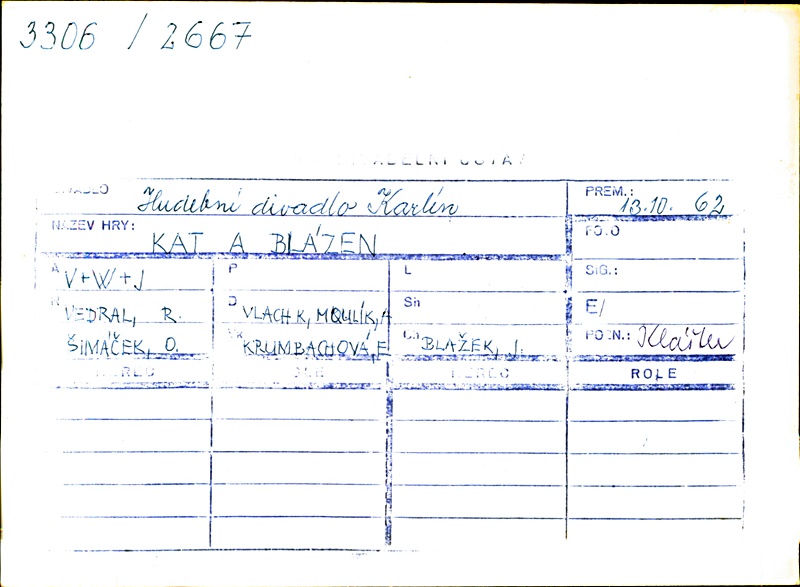 3306 / 2667
DIVADLO Hudební divadlo Karlín PREM.: 13.10. 62
NÁZEV HRY: KAT A BLÁZEN FOTO
A V+W+J P L SIG.:
R VEDRAL, R. D VLACH K, MOULÍK, A Sh E/
ŠIMÁČEK, O. KRUMBACHOVÁ, E Ch BLAŽEK, J. POZN.:
HEREC HEREC ROLE